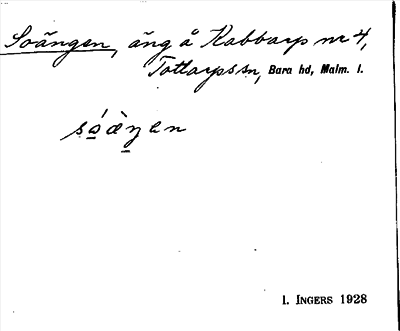 Soängen, äng å Kabbarp nr 4,
Tottarps sn, Bara hd, Malm. l.
só̱æ̀ŋ̱en
I. INGERS 1928